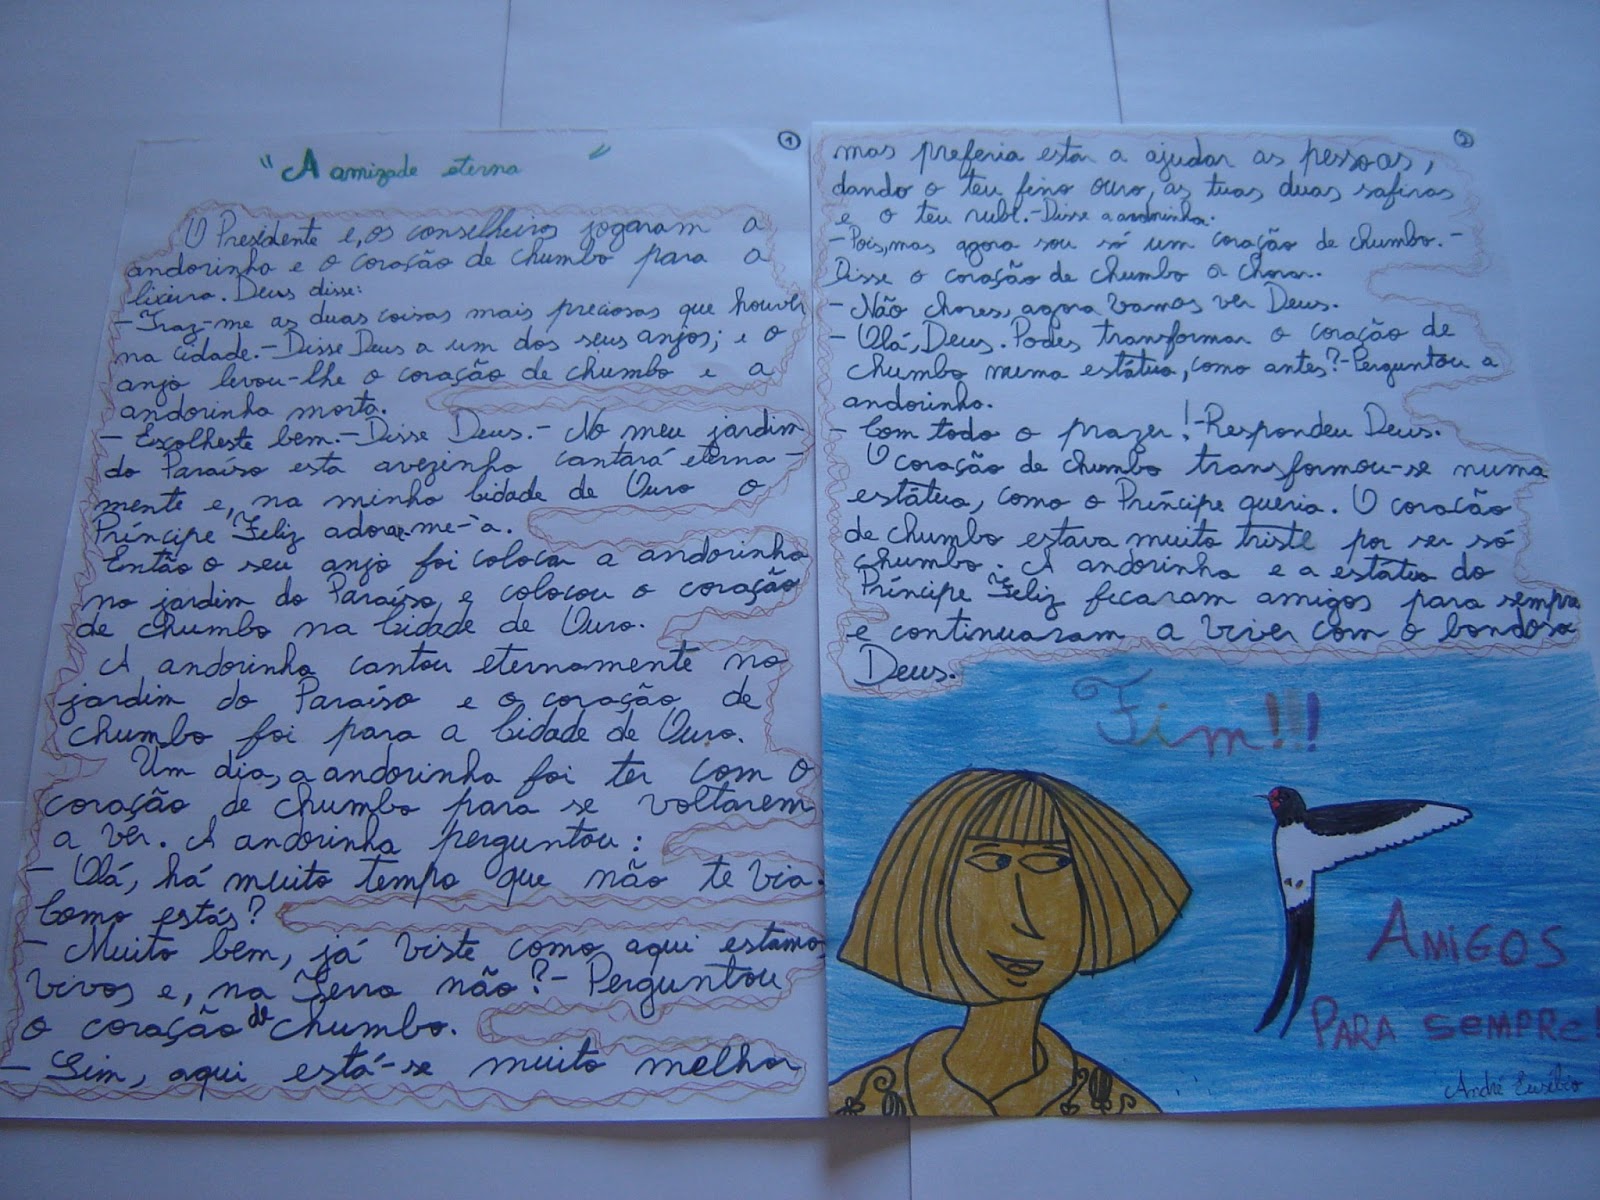 ①
"A amizade eterna"
O Presidente e, os conselheiros jogaram a
andorinha e o coração de chumbo para a
lixeira. Deus disse:
-Traz-me as duas coisas mais preciosas que houver
na cidade.-Disse Deus a um dos seus anjos; e o
anjo levou-lhe o coração de chumbo e a
andorinha morta.
- Escolheste bem.-Disse Deus.- No meu jardim
do Paraíso esta avezinha cantará eterna-
mente e, na minha Cidade de Ouro o
Príncipe Feliz adorar-me-à.
Então o seu anjo foi colocar a andorinha
no jardim do Paraíso, e colocou o coração
de chumbo na Cidade de Ouro.
A andorinha cantou eternamente no
jardim do Paraíso e o coração de
chumbo foi para a Cidade de Ouro.
Um dia, a andorinha foi ter com o
coração de chumbo para se voltarem
a ver. A andorinha perguntou:
- Olá, há muito tempo que não te via.
Como estás?
- Muito bem, já viste como aqui estamos
vivos e, na Terra não?- Perguntou
o coração de chumbo.
- Sim, aqui está-se muito melhor
②
mas preferia estar a ajudar as pessoas,
dando o teu fino ouro, as tuas duas safiras
e o teu rubi.-Disse a andorinha.
-Pois, mas agora sou só um coração de chumbo.-
Disse o coração de chumbo a chorar.
- Não chores, agora vamos ver Deus.
- Olá, Deus. Podes transformar o coração de
chumbo numa estátua, como antes?-Perguntou a
andorinha.
- Com todo o prazer!-Respondeu Deus.
O coração de chumbo transformou-se numa
estátua, como o Príncipe queria. O coração
de chumbo estava muito triste por ser só
chumbo. A andorinha e a estátua do
Príncipe Feliz ficaram amigos para sempre
e continuaram a viver com o bondoso
Deus.
Fim!!!
AMIGOS
PARA SEMPRE!
André Eusébio